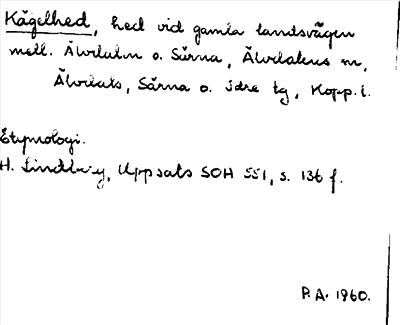 Kågelhed, hed vid gamla landsvägen
mell. Älvdalen o. Särna, Älvdalens sn,
Älvdals, Särna o. Idre tg, Kopp. l.
Etymologi.
H. Lindberg, Uppsats SOH 551, s. 136 f.
P.A. 1960.